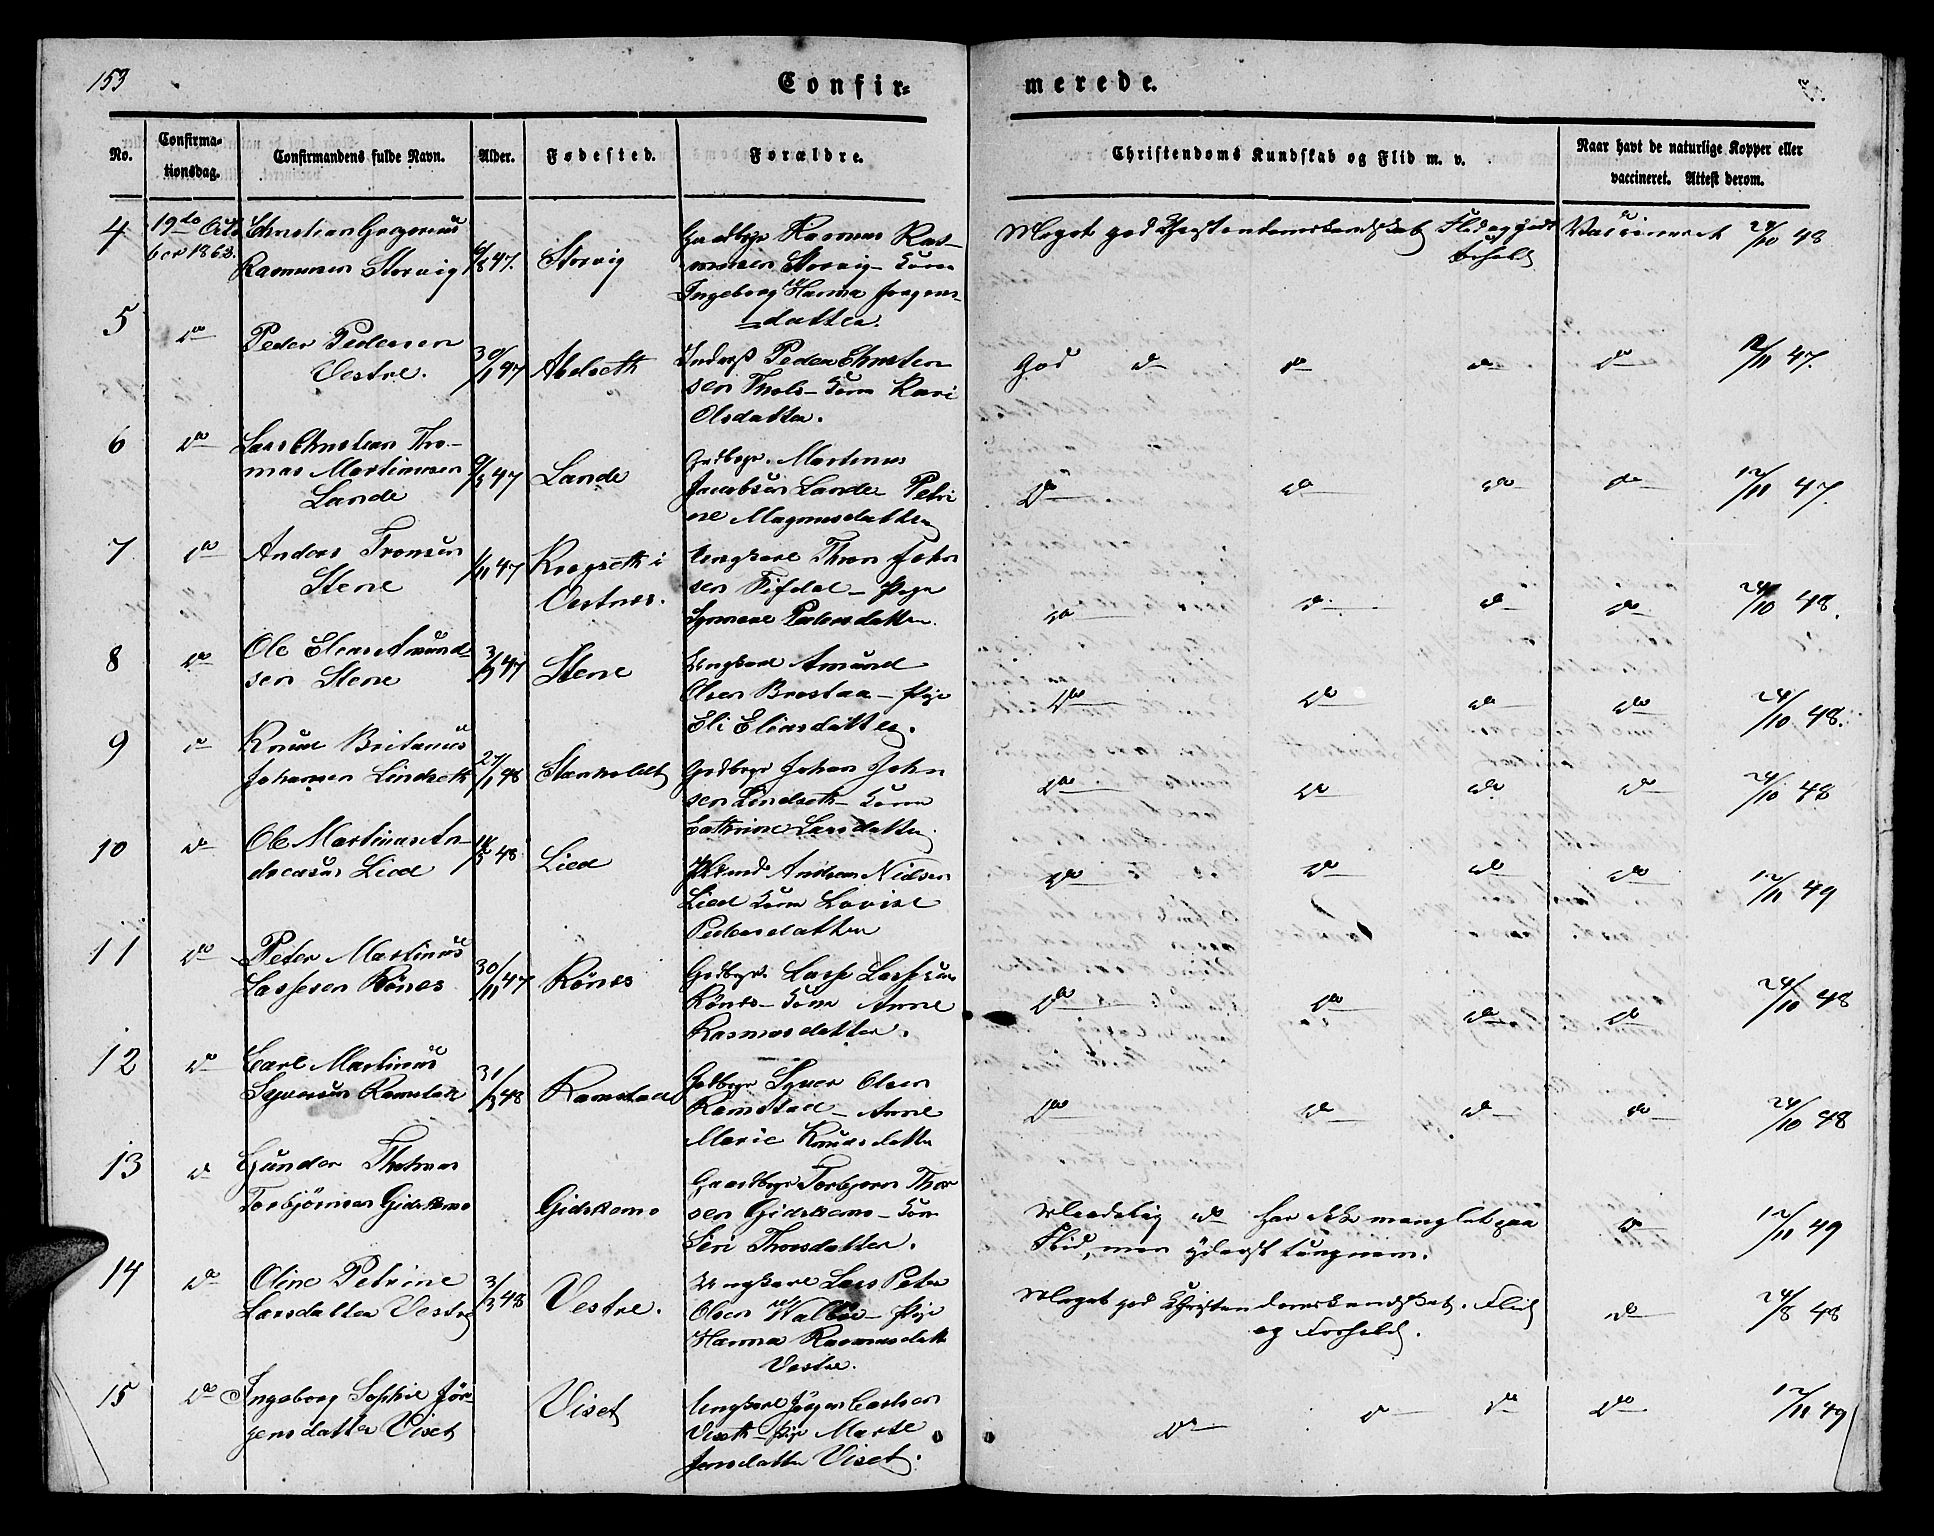 153
Confir=
merede.
No.
Confirma-
tionsdag.
Confirmandens fulde Navn.
Alder.
Fødested.
Forældre.
Christendoms Kundskab og Flid m. v.
Naar havt de naturlige Kopper eller
vaccineret. Attest derom.
4
19de Octo
ber 1862.
Christian Gregorius
Rasmussen Storvig
47.
Storvig
Gaardbrgr Rasmus Ras-
mussen Storvig - Kone
Ingeborg Hanna Jørgens-
datter.
Meget god Christendomskundskab Flid og godt
Forhold
Vaccineret
24/10 48
5
do
Peder Pedersen
Vestre.
30/11 47
Abelseth
Inderst Peder Christen
sen - Kone Kari
Olsdatter.
God do do do
do
12/11 47.
6
do
Lars Christian Tho-
mas Martinussen
Lande
47
Lande
Grdbrgr. Martinus
Jacobsen Lande Petri
ne Magnusdatter
do do do
do
12/11 47.
7
do
Anders Tronsen
Stene
1/11 47
Kragseth i
Vestnes.
Ungkarl Thron John
sen Fifdal - Pige
Synneve Pedersdatter.
do do do
do
24/10 48.
8
do
Ole Elias Amund-
sen Stene
47
Stene
Ungkarl Amund
Olsen Brastaa - Pige
Eli Eliasdatter.
do do do
do
24/10 48.
9
do
Knud Britanus
Johansen Lindseth
27/1 48
Stenholdt
Grdbrgr Johan John
sen Lindseth - Kone
Cathrine Larsdatter.
do do do
do
24/10 48
10
do
Ole Martinus An-
dreasen Lied
48
Lied
Andreas Nielsen
Lied Kone Lovise
Pedersdatter
do do do
do
12/11 49
11
do
Peder Martinus
Lassesen Rønes
30/11 47
Rønes
Grdbrgr. Lasse Lassesen
Rønes - Kone Anne
Rasmusdatter.
do do do
do
24/10 48
12
do
Carl Martinus
Syversen Ramstad
31/3 48
Ramstad
Grdbrgr Syver Olsen
Ramstad - Anne
Marie Knudsdatter
do do do
do
24/10 48
13
do
Gunder Thomas
Torbjørnsen Gidskemo
Gidskemo
Gaardbrgr Torbjørn Thor
sen Gidskemo - Kone
Siri Thorsdatter.
Maadelig do har ikke manglet paa
Flid, men yderst tungnem.
do
12/11 49
14
do
Oline Petrine
Larsdatter Vestre
3/3 48
Vestre.
Ungkarl Lars Peter
Olsen Walbøe - Pige
Hanna Rasmusdattr
Vestre.
Meget god Christendomskundskab. Flid
og Forhold.
do
24/8 48
15
do
Ingeborg Sophie Jør-
gensdatter Viset
Viset
Ungkarl Jørgen Carlsen
Viseth - Pige Marte
Jensdatter Viset.
do do do
do
12/11 49